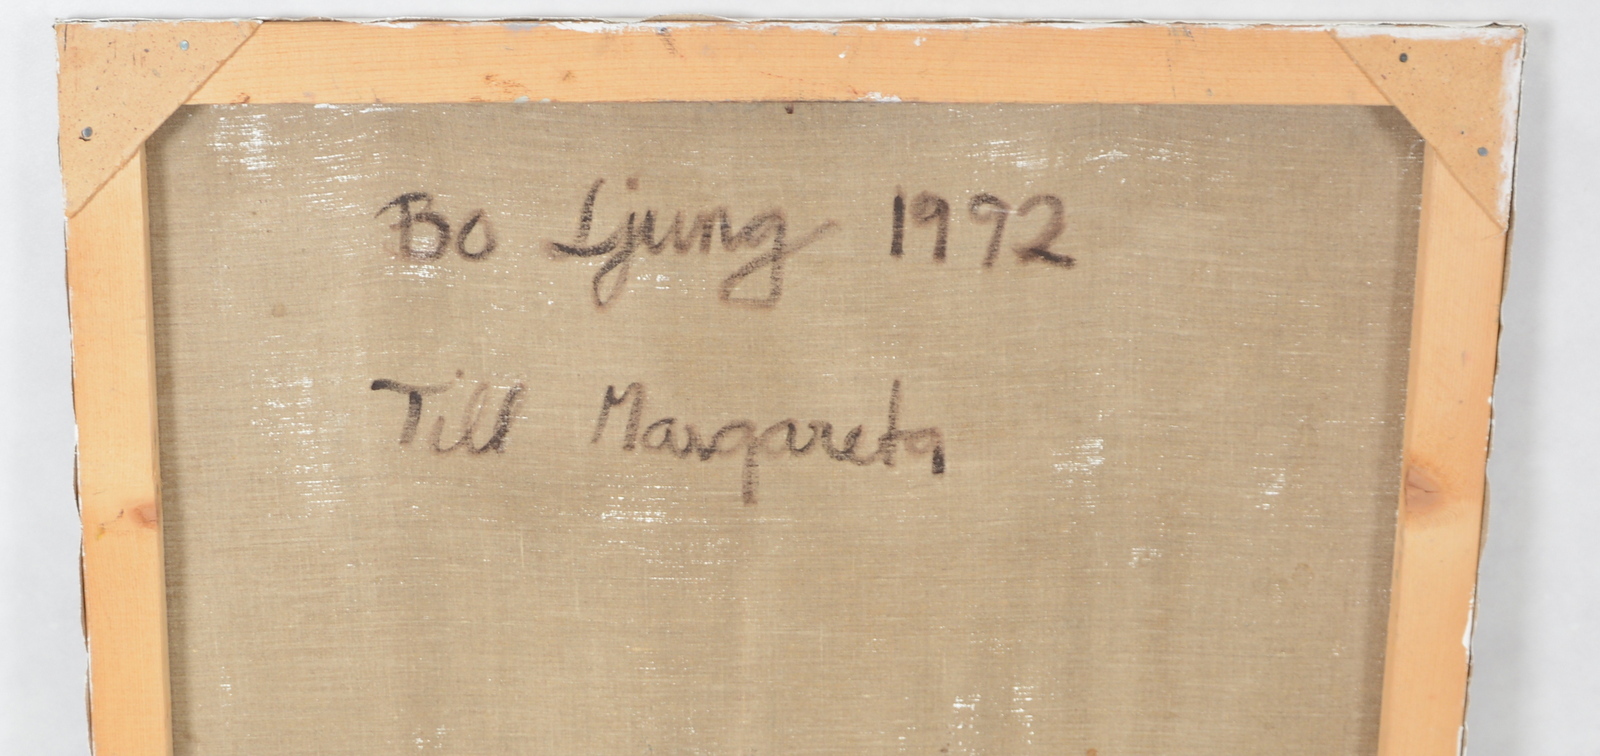 Bo Ljung 1992
Till Margareta